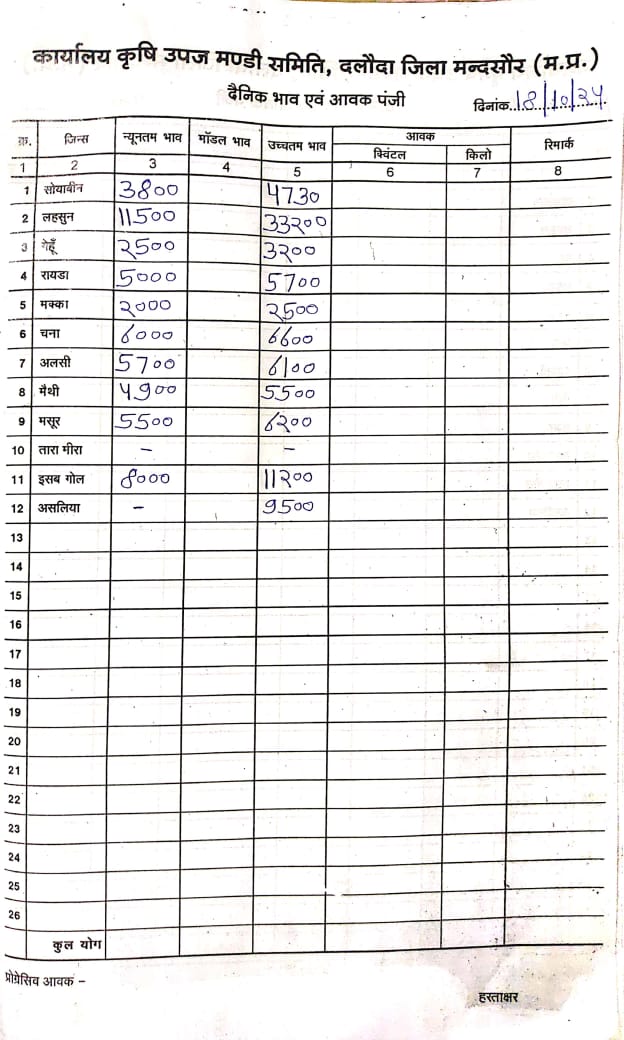 कार्यालय कृषि उपज मण्डी समिति, दलौदा जिला मन्दसौर (म.प्र.)
दैनिक भाव एवं आवक पंजी
दिनांक..18/10/24
क्र. जिन्स न्यूनतम भाव मॉडल भाव उच्चतम भाव आवक रिमार्क
क्विंटल किलो
1 2 3 4 5 6 7 8
1 सोयाबीन 3800 4730
2 लहसुन 11500 33२००
3 गेहूँ २500 3२00
4 रायडा 5000 5700
5 मक्का २000 २500
6 चना 6000 6600
7 अलसी 5700 6100
8 मैथी 4900 5500
9 मसूर 5500 6२00
10 तारा मीरा – –
11 इसब गोल 8000 11२00
12 असलिया – 9500
13
14
15
16
17
18
19
20
21
22
23
24
25
26
कुल योग
प्रोग्रेसिव आवक –
हस्ताक्षर